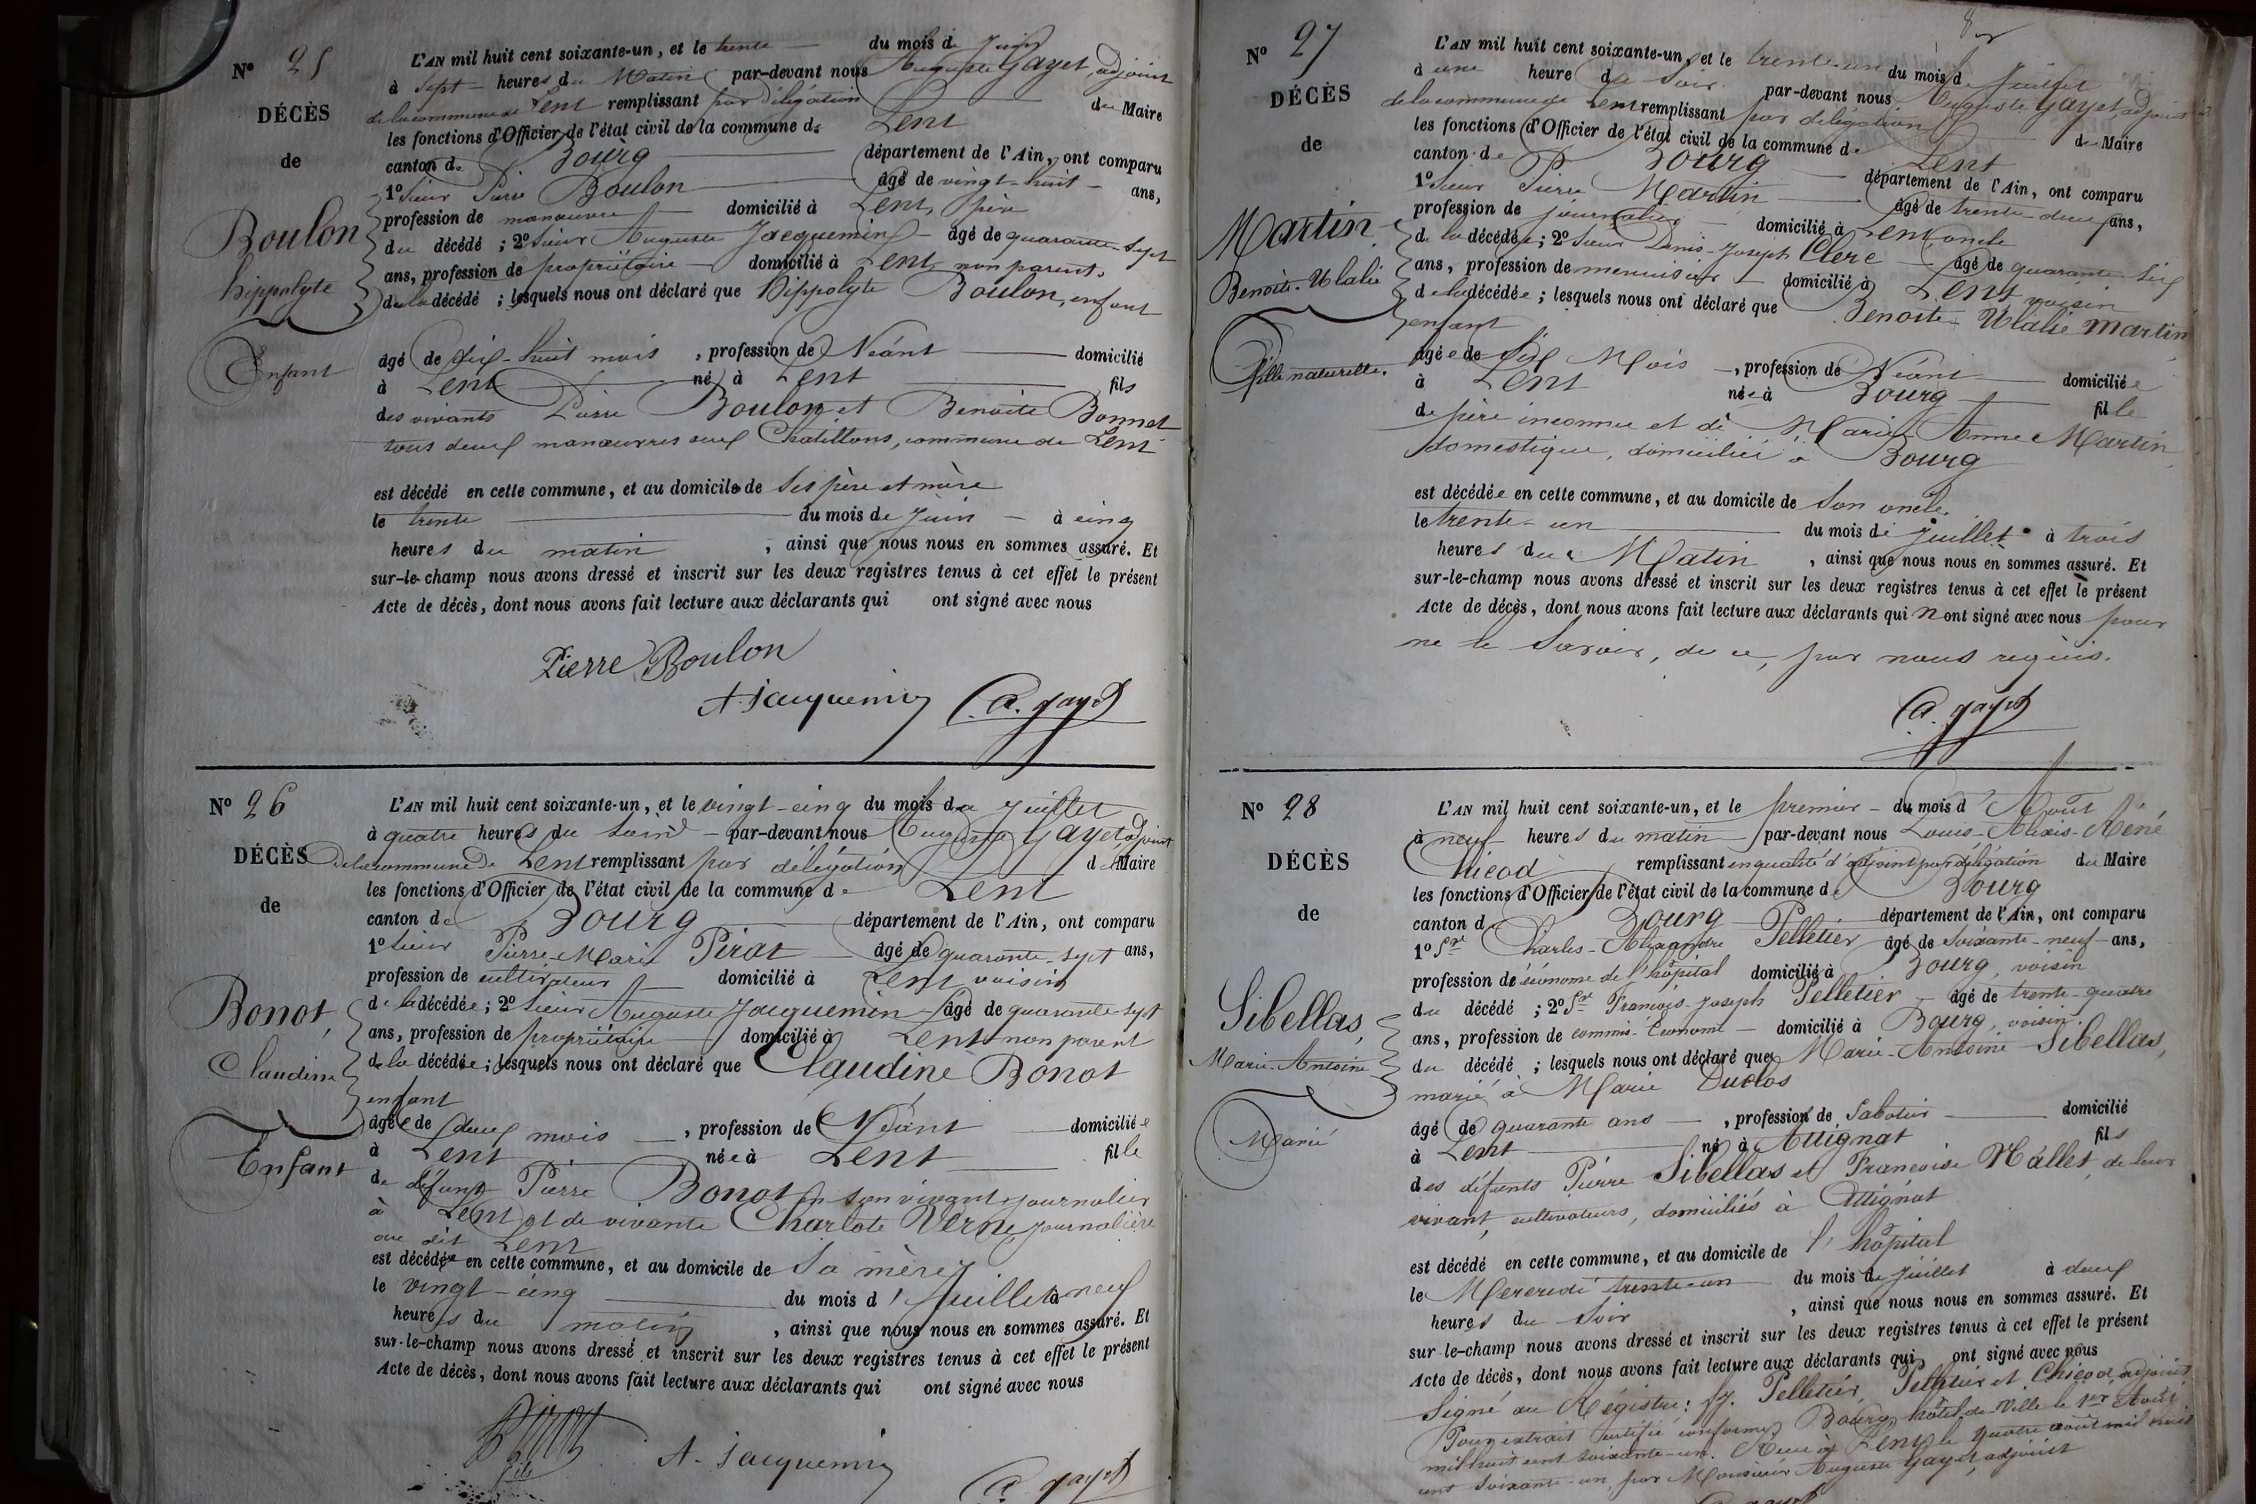 N° 25
DÉCÈS
de
Boulon
hippolyte
Enfant
L'AN mil huit cent soixante-un, et le trente du mois de Juin
à Sept heures du Matin par-devant nous Auguste Gayet, adjoint
de la commune de Lent remplissant par délégation du Maire
les fonctions d'Officier de l'état civil de la commune de Lent
canton de Bourg département de l'Ain, ont comparu
1° Sieur Pierre Boulon âgé de vingt-huit ans,
profession de manœuvre domicilié à Lent, père
du décédé ; 2° Sieur Auguste Jacquemin âgé de quarante-sept
ans, profession de propriétaire domicilié à Lent, non parent
du décédé ; lesquels nous ont déclaré que Hippolyte Boulon, enfant
âgé de dix-huit mois, profession de Néant domicilié
à Lent né à Lent fils
des vivants Pierre Boulon et Benoite Bonnet
tous deux manœuvres aux Chatillons, commune de Lent
est décédé en cette commune, et au domicile de Ses père et mère
le trente du mois de Juin à cinq
heures du matin, ainsi que nous nous en sommes assuré. Et
sur-le-champ nous avons dressé et inscrit sur les deux registres tenus à cet effet le présent
Acte de décès, dont nous avons fait lecture aux déclarants qui ont signé avec nous
Pierre Boulon
A. Jacquemin A. gayet
N° 26
DÉCÈS
de
Bonot,
Claudine
Enfant
L'AN mil huit cent soixante-un, et le vingt-cinq du mois de Juillet
à quatre heures du Soir par-devant nous Auguste Gayet, adjoint
de la commune de Lent remplissant par délégation du Maire
les fonctions d'Officier de l'état civil de la commune de Lent
canton de Bourg département de l'Ain, ont comparu
1° Sieur Pierre-Marie Pirat âgé de quarante-sept ans,
profession de cultivateur domicilié à Lent voisin
de la décédée ; 2° Sieur Auguste Jacquemin âgé de quarante-sept
ans, profession de propriétaire domicilié à Lent non parent
de la décédée ; lesquels nous ont déclaré que Claudine Bonot
enfant
âgée de deux mois, profession de Néant domiciliée
à Lent née à Lent fille
de défunt Pierre Bonot en son vivant journalier
à Lent et de vivante Charlote Verne journalière
au dit Lent
est décédée en cette commune, et au domicile de Sa mère
le vingt-cinq du mois d Juillet à neuf
heures du matin, ainsi que nous nous en sommes assuré. Et
sur-le-champ nous avons dressé et inscrit sur les deux registres tenus à cet effet le présent
Acte de décès, dont nous avons fait lecture aux déclarants qui ont signé avec nous
A. Jacquemin
A. gayet
N° 27
DÉCÈS
de
Martin
Benoite-Ulalie
Fille naturelle.
L'AN mil huit cent soixante-un, et le trente-un du mois de Juillet
à une heure du Soir par-devant nous Auguste Gayet, adjoint
de la commune de Lent remplissant par délégation du Maire
les fonctions d'Officier de l'état civil de la commune de Lent
canton de Bourg département de l'Ain, ont comparu
1° Sieur Pierre Martin âgé de trente-deux ans,
profession de journalier domicilié à Lent oncle
de la décédée ; 2° Sieur Denis-Joseph Clerc âgé de quarante-six
ans, profession de menuisier domicilié à Lent voisin
de la décédée ; lesquels nous ont déclaré que Benoite-Ulalie Martin
enfant
âgée de Six Mois, profession de Néant domiciliée
à Lent née à Bourg fille
de père inconnu et de Marie-Anne Martin,
domestique, domiciliée à Bourg
est décédée en cette commune, et au domicile de Son oncle
le trente-un du mois de Juillet à trois
heures du Matin, ainsi que nous nous en sommes assuré. Et
sur-le-champ nous avons dressé et inscrit sur les deux registres tenus à cet effet le présent
Acte de décès, dont nous avons fait lecture aux déclarants qui n'ont signé avec nous pour
ne le Savoir, de ce, par nous requis.
A. gayet
N° 28
DÉCÈS
de
Sibellas,
Marie-Antoine
Marié
L'AN mil huit cent soixante-un, et le premier du mois d'Août
à neuf heures du matin par-devant nous Louis-Alexis-Réné
Chicod remplissant en qualité d'adjoint par délégation du Maire
les fonctions d'Officier de l'état civil de la commune de Bourg
canton de Bourg département de l'Ain, ont comparu
1° Sr Charles-Alexandre Pelletier âgé de Soixante-neuf ans,
profession d'économe de l'hôpital domicilié à Bourg, voisin
du décédé ; 2° Sr François-Joseph Pelletier âgé de trente-quatre
ans, profession de commis-Econome domicilié à Bourg, voisin
du décédé ; lesquels nous ont déclaré que Marie-Antoine Sibellas,
marié à Marie Duclos
âgé de quarante ans, profession de Sabotier domicilié
à Lent né à Attignat fils
des défunts Pierre Sibellas et Françoise Mallet, de leur
vivant, cultivateurs, domiciliés à Attignat
est décédé en cette commune, et au domicile de l'hôpital
le Mercredi trente-un du mois de Juillet à deux
heures du Soir, ainsi que nous nous en sommes assuré. Et
sur-le-champ nous avons dressé et inscrit sur les deux registres tenus à cet effet le présent
Acte de décès, dont nous avons fait lecture aux déclarants qui ont signé avec nous
Signé au Régistre : Pelletier, Pelletier et Chicod, adjoint
Pour extrait certifié conforme, Bourg, hôtel-de-Ville le 1er Août
mil huit cent soixante-un. Lent le quatre août mil huit
cent Soixante-un, par Monsieur Auguste Gayet, adjoint